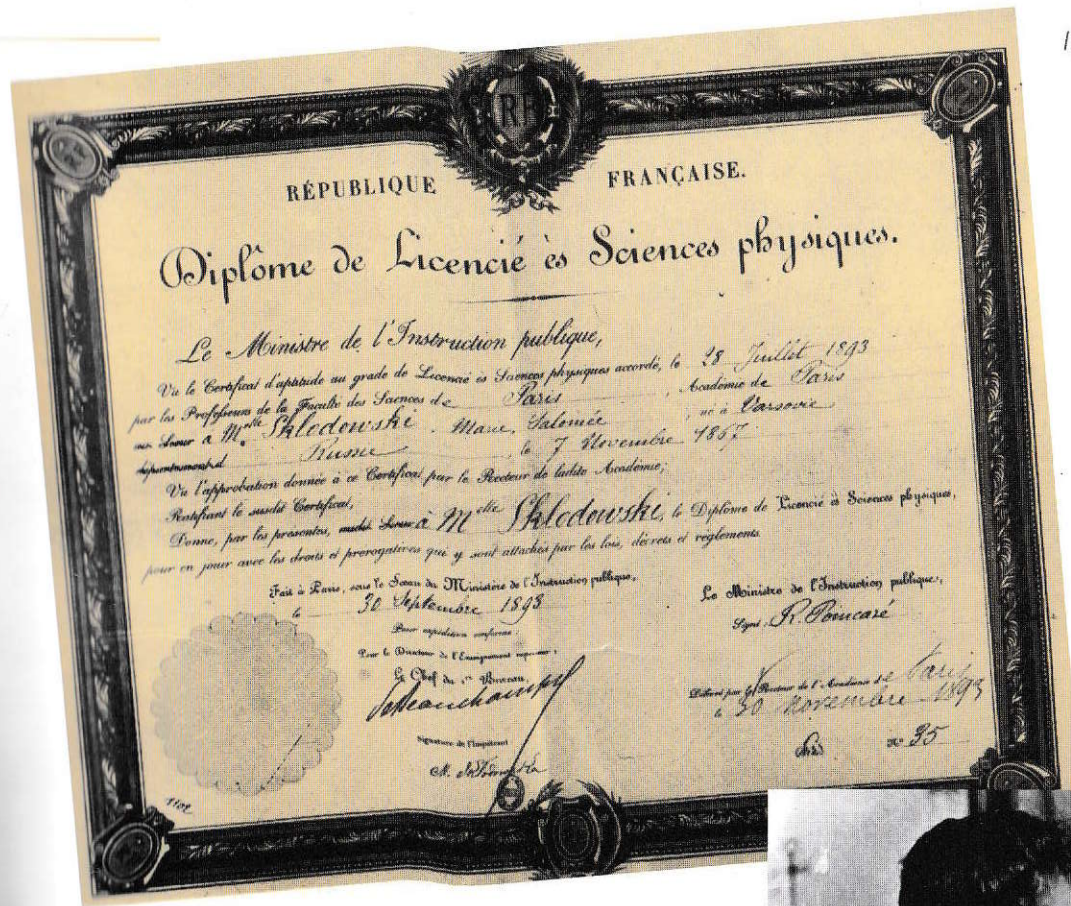 RF
RÉPUBLIQUE FRANÇAISE.
Diplôme de Licencié ès Sciences physiques.
Le Ministre de l'Instruction publique,
Vu le Certificat d'aptitude au grade de Licencié ès Sciences physiques accordé, le 28 Juillet 1893
par les Professeurs de la Faculté des Sciences de Paris, Académie de Paris
à Melle Sklodowski Marie, Salomée né à Varsovie
Russie le 7 Novembre 1867
Vu l'approbation donnée à ce Certificat par le Recteur de ladite Académie;
Ratifiant le susdit Certificat,
Donne, par les présentes, à Melle Sklodowski, le Diplôme de Licencié ès Sciences physiques,
pour en jouir avec les droits et prérogatives qui y sont attachés par les lois, décrets et règlements.
Fait à Paris, sous le Sceau du Ministère de l'Instruction publique,
le 30 Septembre 1893
Pour expédition conforme:
Pour le Directeur de l'Enseignement supérieur:
Le Chef du 1er Bureau,
Signature de l'Impétrant
M.
Le Ministre de l'Instruction publique,
Signé: R. Poincaré
Délivré par le Recteur de l'Académie de Paris
le 30 novembre 1893
No 35